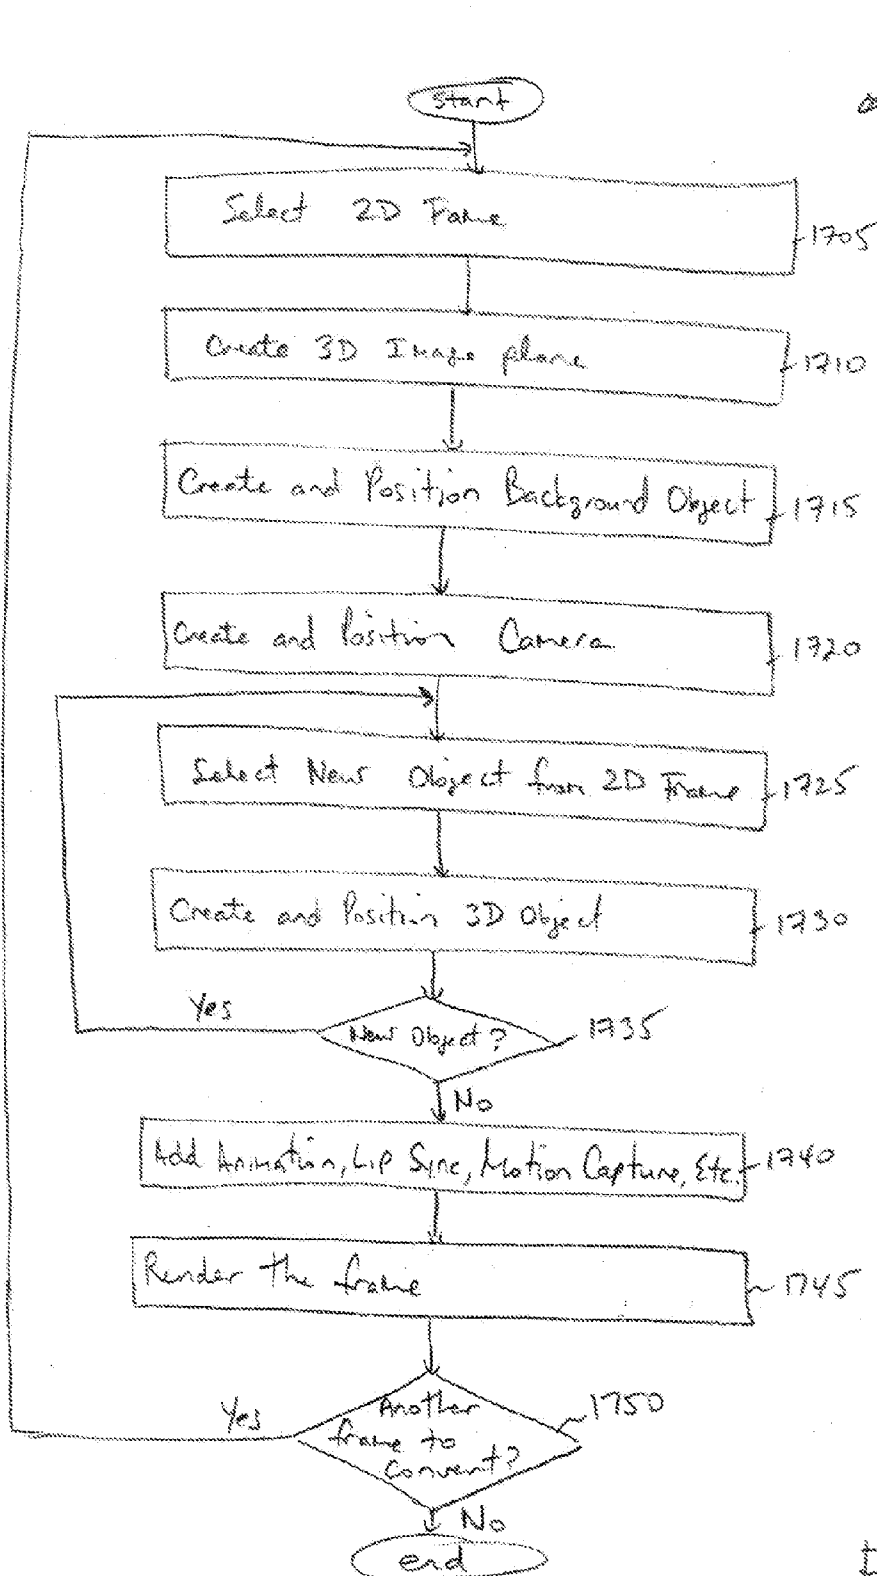 start
Select 2D Frame
1705
Create 3D Image plane
1710
Create and Position Background Object
1715
Create and Position Camera
1720
Select New Object from 2D Frame
1725
Create and Position 3D Object
1730
Yes
New Object?
1735
No
Add Animation, Lip Sync, Motion Capture, Etc.
1740
Render the frame
1745
1750
Yes
Another
frame to
convert?
No
end